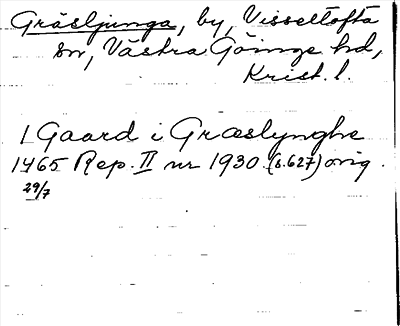 Gräsljunga, by, Visseltofta
sn, Västra Göinge hd,
Krist. l.
1 Gaard i Græslynghe
1465 Rep. II nr 1930. (s. 627) orig.
29/7